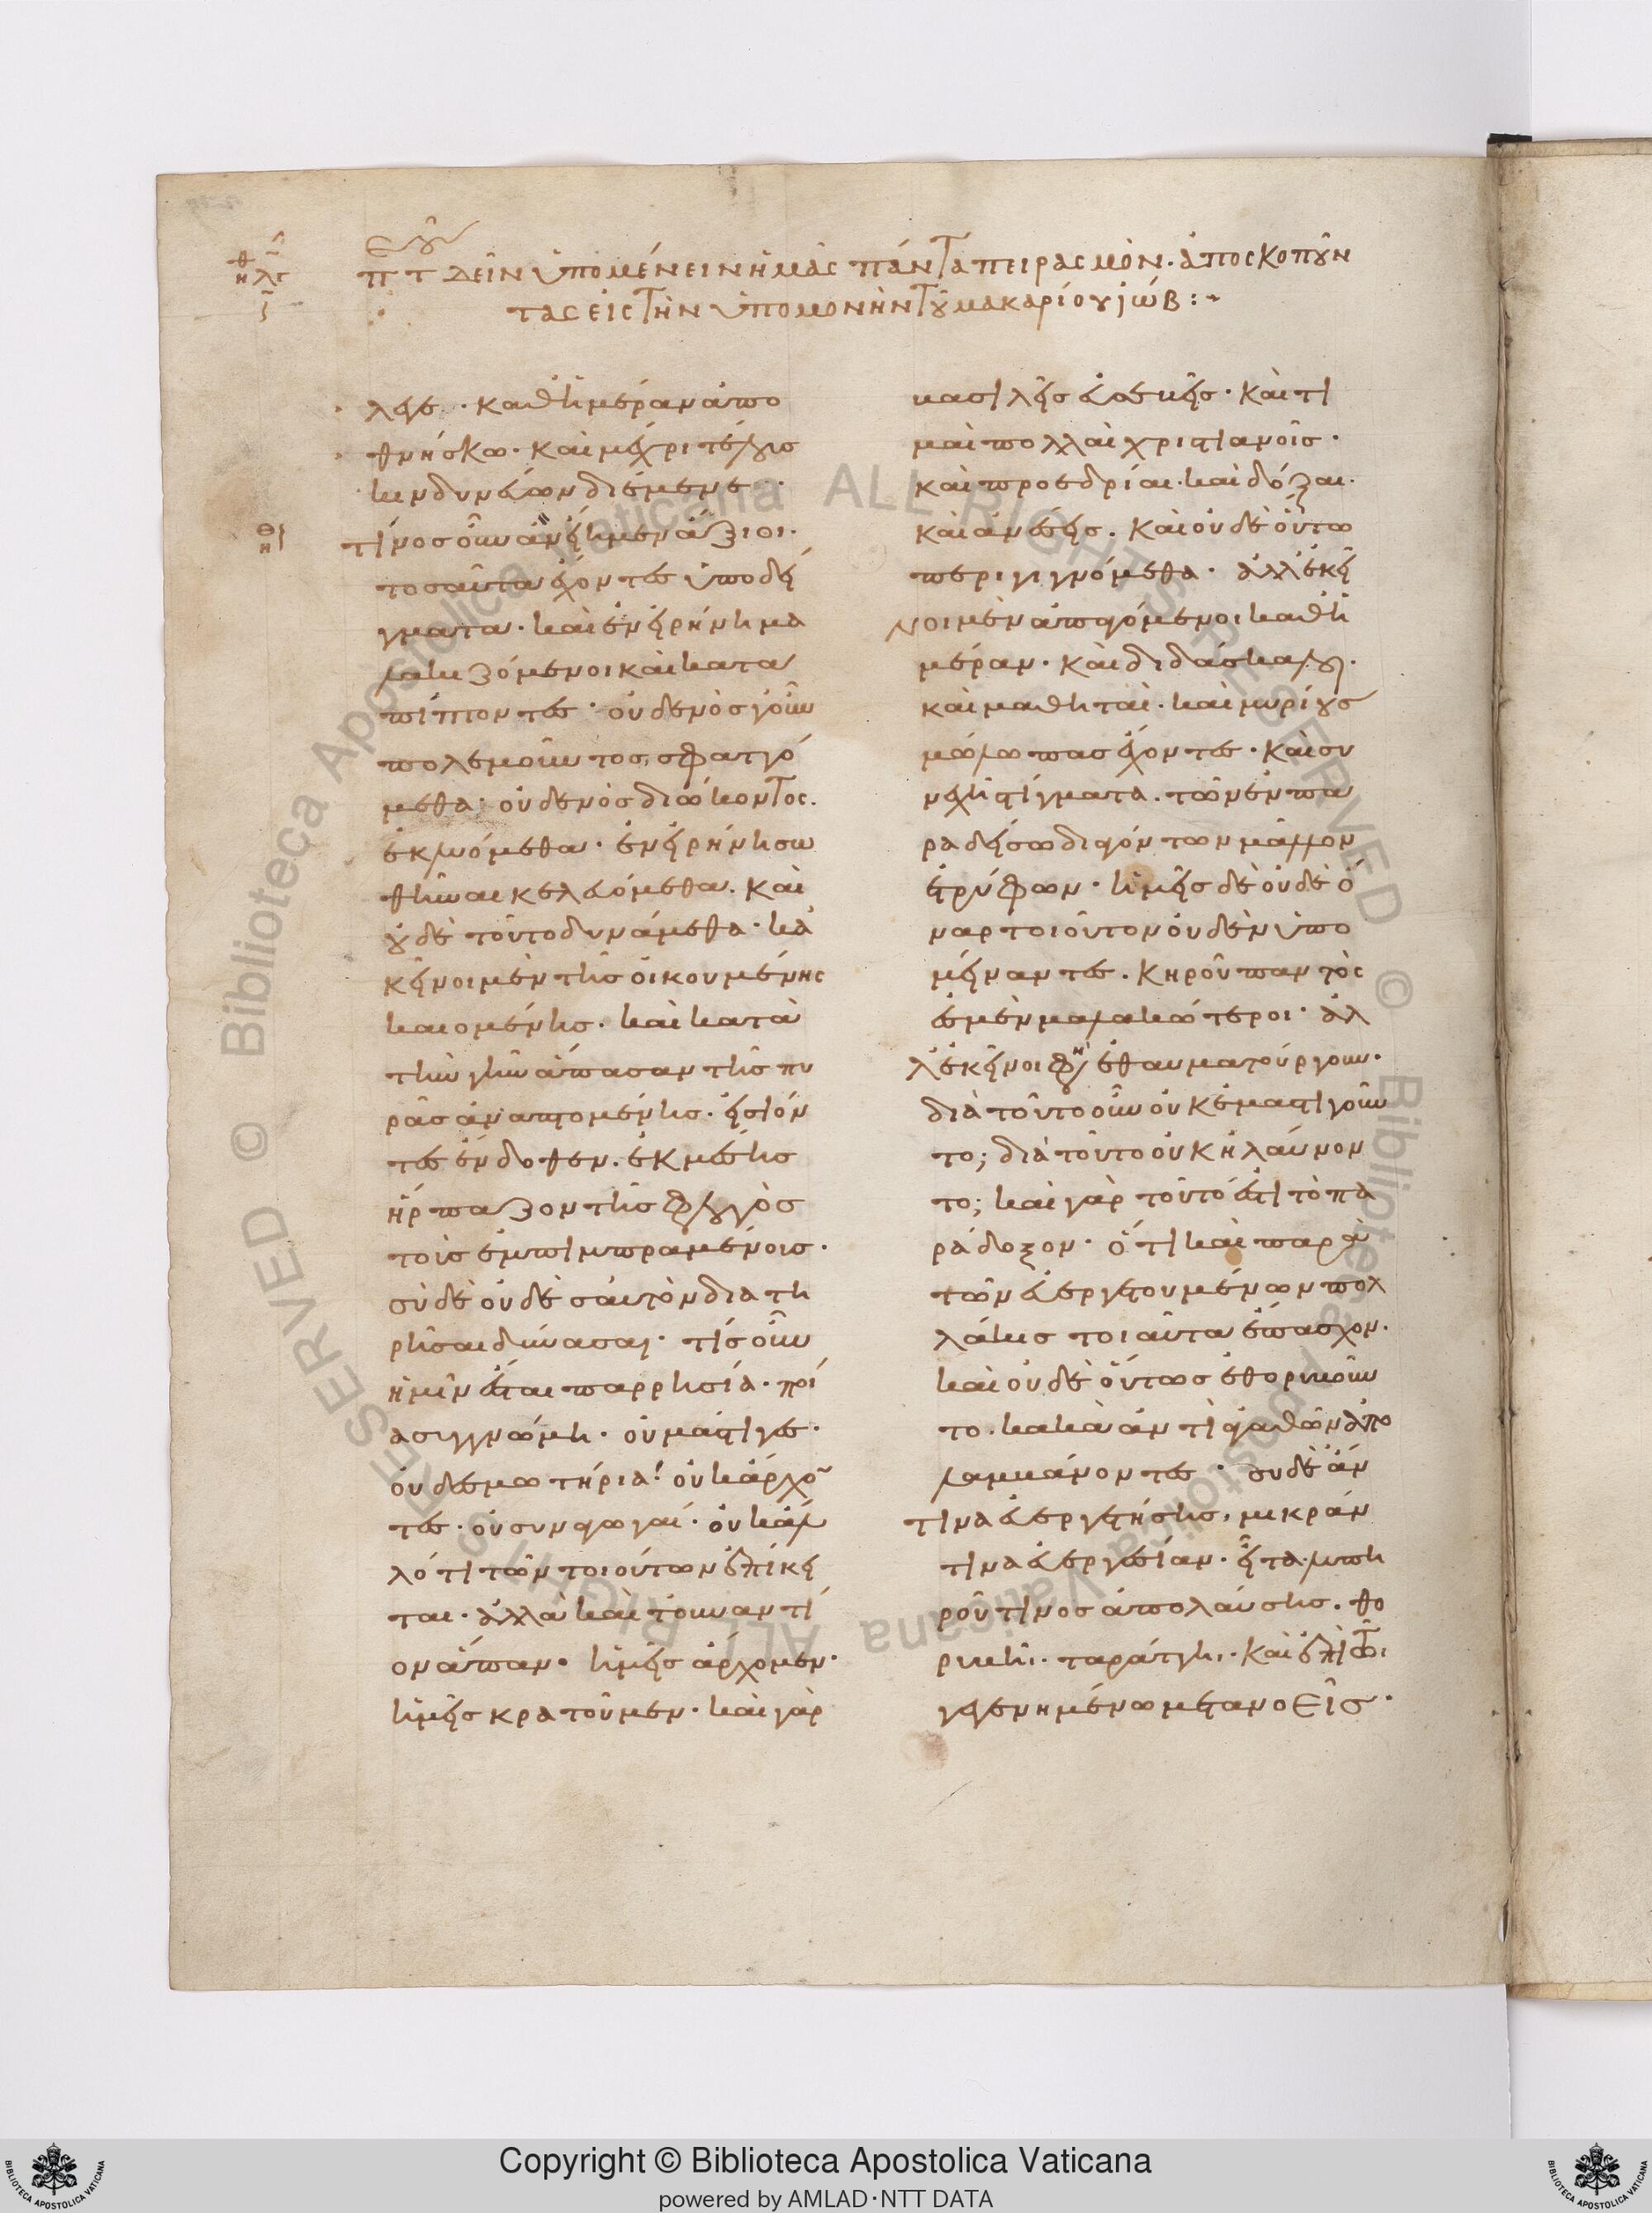 π τ δεῖν ὑπομένειν ἡμᾶς πάντα πειρασμόν. ἀποσκοποῦν
τας εἰς τὴν ὑπομονὴν τοῦ μακαρίου ἰώβ:
λει. καθημέραν ἀπο
θνήσκω. καὶ μέχρι τέλους
κινδυνεύων διέμεινε.
τίνος οὖν ἂν εἴημεν ἄξιοι.
τοσαῦτα ἔχοντες ὑποδεί
γματα. καὶ ἐν εἰρήνη μα
λακιζόμενοι καὶ κατα
πίπτοντες. οὐδενὸς γοῦν
πολεμοῦντος, σφαττό
μεθα. οὐδενὸς διώκοντος.
ἐκλυόμεθα. ἐν εἰρήνη σω
θῆναι κελευόμεθα. καὶ
οὐδὲ τοῦτο δυνάμεθα. κἀ
κεῖνοι μὲν τῆς οἰκουμένης
καιομένης. καὶ κατὰ
τὴν γῆν ἅπασαν τῆς πυ
ρᾶς ἀναπτομένης. εἰσιόν
τες ἔνδοθεν. ἐκ μέσης
ἥρπαζον τῆς φλογὸς
τοὺς ἐμπιμπραμένους.
σὺ δὲ οὐδὲ σαυτὸν διατη
ρῆσαι δύνασαι. τίς οὖν
ἡμῖν ἔσται παρρησία. ποί
α συγγνώμη. οὐ μάστιγες.
οὐ δεσμωτήρια! οὐκ ἄρχον
τες. οὐ συναγωγαί. οὐκ ἄλ
λό τι τῶν τοιούτων ἐπίκει
ται. ἀλλὰ καὶ τοὐναντί
ον ἅπαν. ἡμεῖς ἄρχομεν.
ἡμεῖς κρατοῦμεν. καὶ γὰρ
βασιλεῖς εὐσεβεῖς. καὶ τι
μαὶ πολλαὶ χριστιανοῖς.
καὶ προεδρίαι. καὶ δόξαι.
καὶ ἀνέσεις. καὶ οὐδὲ οὕτω
περιγιγνόμεθα. ἀλλ' ἐκεῖ
νοι μὲν ἀπαγόμενοι καθη
μέραν. καὶ διδάσκαλοι.
καὶ μαθηταί. καὶ μυρίους
μώλωπας ἔχοντες. καὶ συ
νεχῆ στίγματα. τῶν ἐν πα
ραδείσω διαγόντων μᾶλλον
ἐτρύφων. ἡμεῖς δὲ οὐδὲ ὄ
ναρ τοιοῦτον οὐδὲν ὑπο
μείναντες. κηροῦ παντὸς
ἐσμὲν μαλακώτεροι. ἀλ
λ' ἐκεῖνοι φησὶν ἐθαυματούργουν.
διὰ τοῦτο οὖν οὐκ ἐμαστιγοῦν
το; διὰ τοῦτο οὐκ ἠλαύνον
το; καὶ γὰρ τοῦτό ἐστι τὸ πα
ράδοξον. ὅτι καὶ παρὰ
τῶν εὐεργετουμένων πολ
λάκις τοιαῦτα ἔπασχον.
καὶ οὐδὲ οὕτως ἐθορυβοῦν
το. κακὰ ἀντὶ ἀγαθῶν ἀπο
λαμβάνοντες. σὺ δὲ ἄν
τινα εὐεργετήσης, μικράν
τινα εὐεργεσίαν. εἶτα λυπη
ροῦ τινος ἀπολαύσης. θο
ρυβῆ. ταράττη. καὶ ἐπὶ τῶ
γεγενημένω μετανοεῖς.